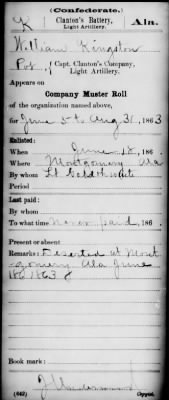 (Confederate.)
K Clanton's Battery, Ala.
Light Artillery.
William Kingston
Pvt, Capt. Clanton's Company,
Light Artillery.
Appears on
Company Muster Roll
of the organization named above,
for June 5 to Aug 31, 1863
Enlisted:
When June 18, 186
Where Montgomery Ala
By whom Lt Goldthwaite
Period
Last paid:
By whom
To what time never paid, 186
Present or absent
Remarks: Deserted at Mont
gomery Ala June
18 1863
Book mark:
(642) Copyist.